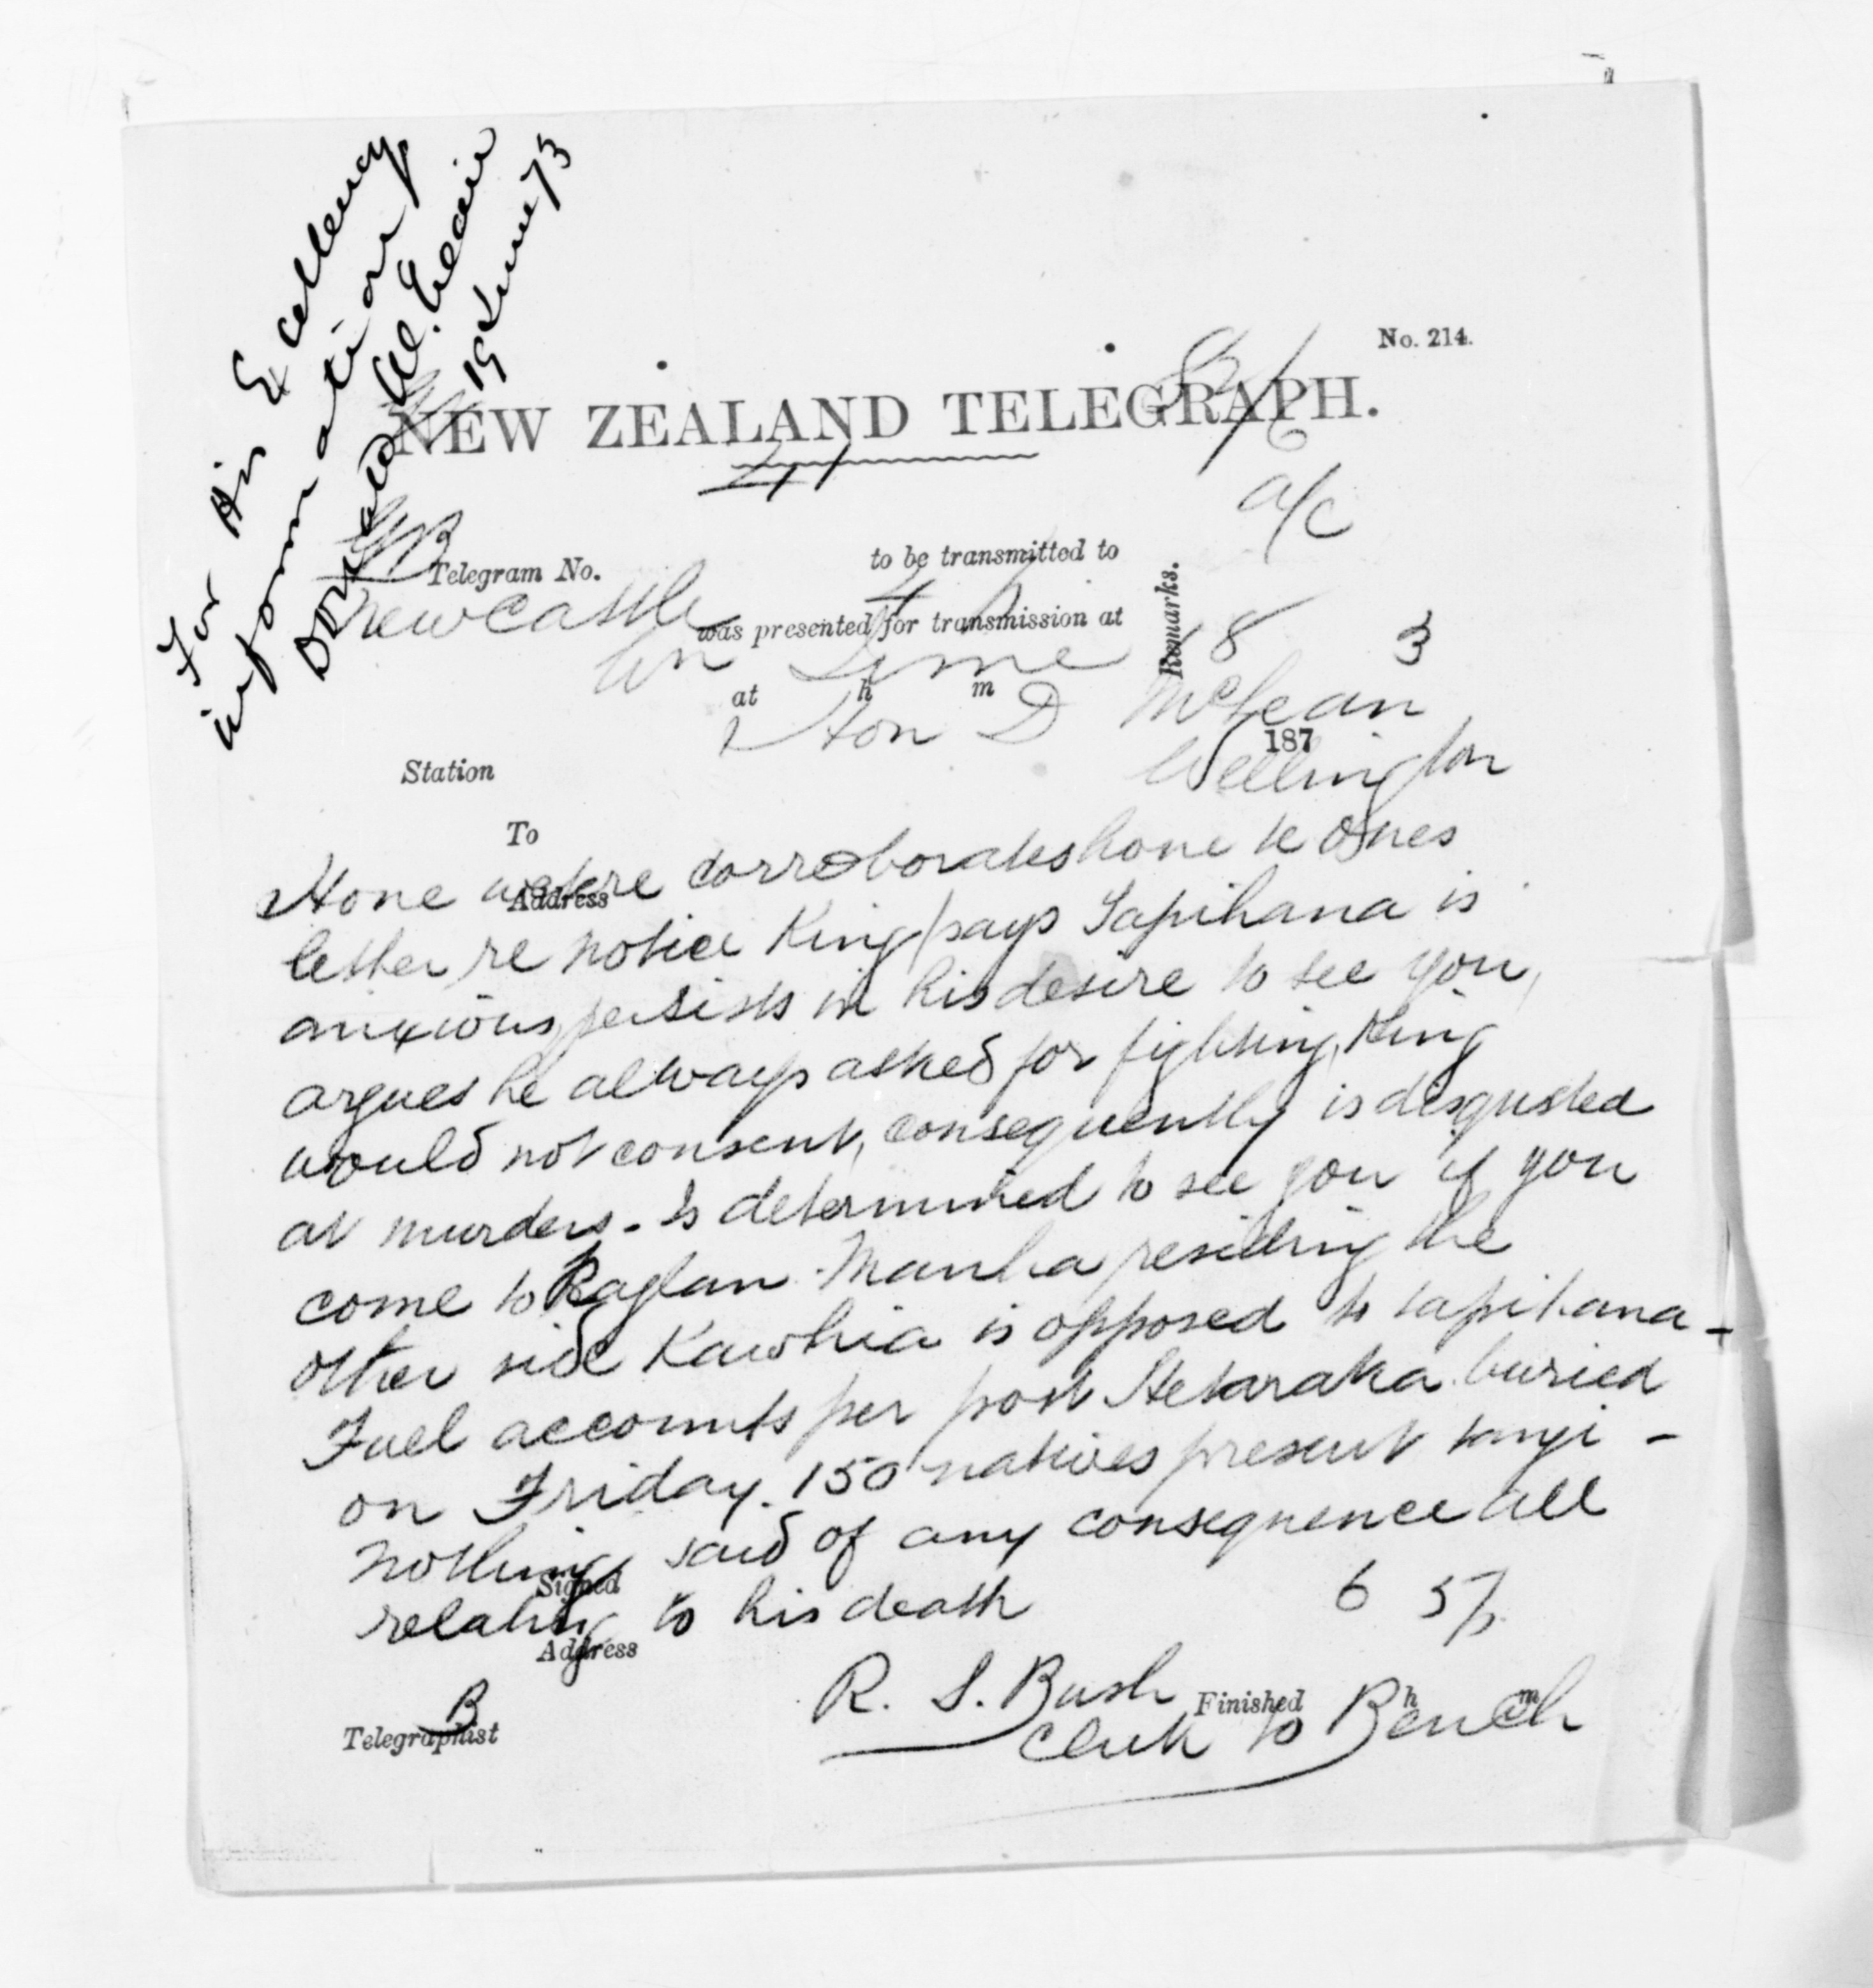 For His Excellency
information
Donald McLean
19 June 73
No. 214.
NEW ZEALAND TELEGRAPH.
a/c
Telegram No. to be transmitted to
Newcastle
was presented for transmission at
Remarks.
18 3
at h m
Hon D McLean
187
Wellington
Station
To
Hone wetere corroborates hone te ones
Address
letter re notice King says Tapihana is
anxious, persists in his desire to see you,
argues he always asked for fighting, King
would not consent, consequently is disgusted
at murders - Is determined to see you if you
come to Raglan. Manha residing the
other side Kawhia is opposed to tapihana -
Fuel accounts per post Hetaraka buried
on Friday. 150 natives present tangi -
nothing said of any consequence all
Signed
relating to his death
Address
R. S. Bush
Finished h m
Clerk to Bench
B
Telegraphist